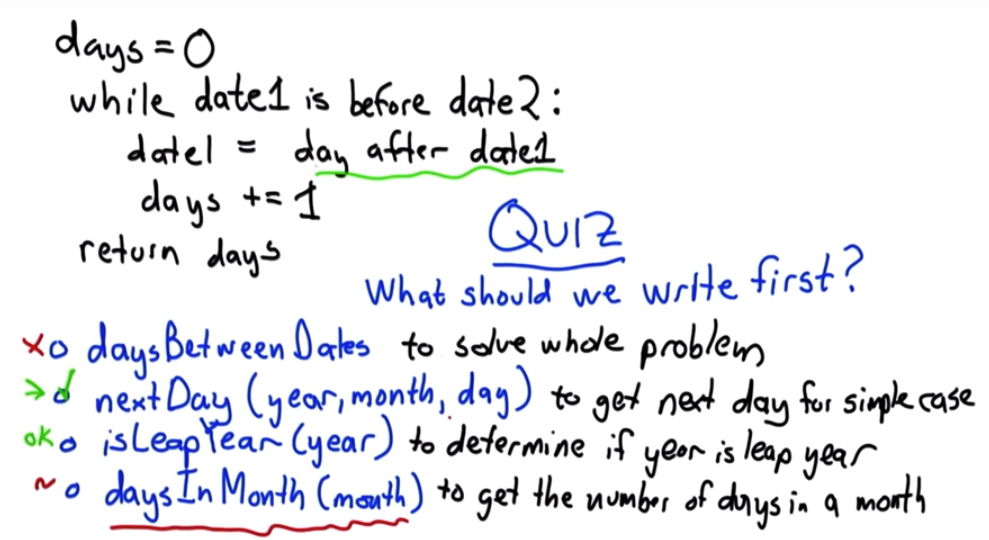 days = 0
while date1 is before date2:
date1 = day after date1
days += 1
return days
QUIZ
What should we write first?
xo daysBetweenDates to solve whole problem
→o nextDay (year, month, day) to get next day for simple case
ok o isLeapYear (year) to determine if year is leap year
~ o daysInMonth (month) to get the number of days in a month